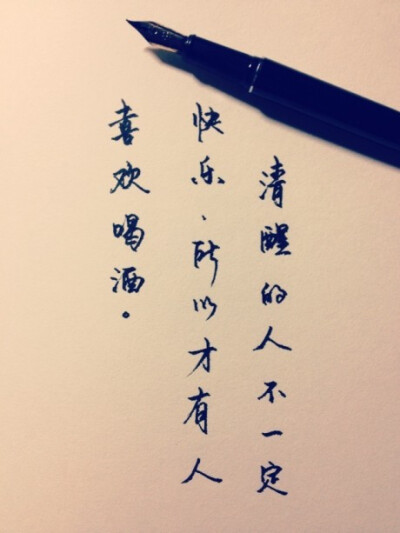 清醒的人不一定
快乐、所以才有人
喜欢喝酒。